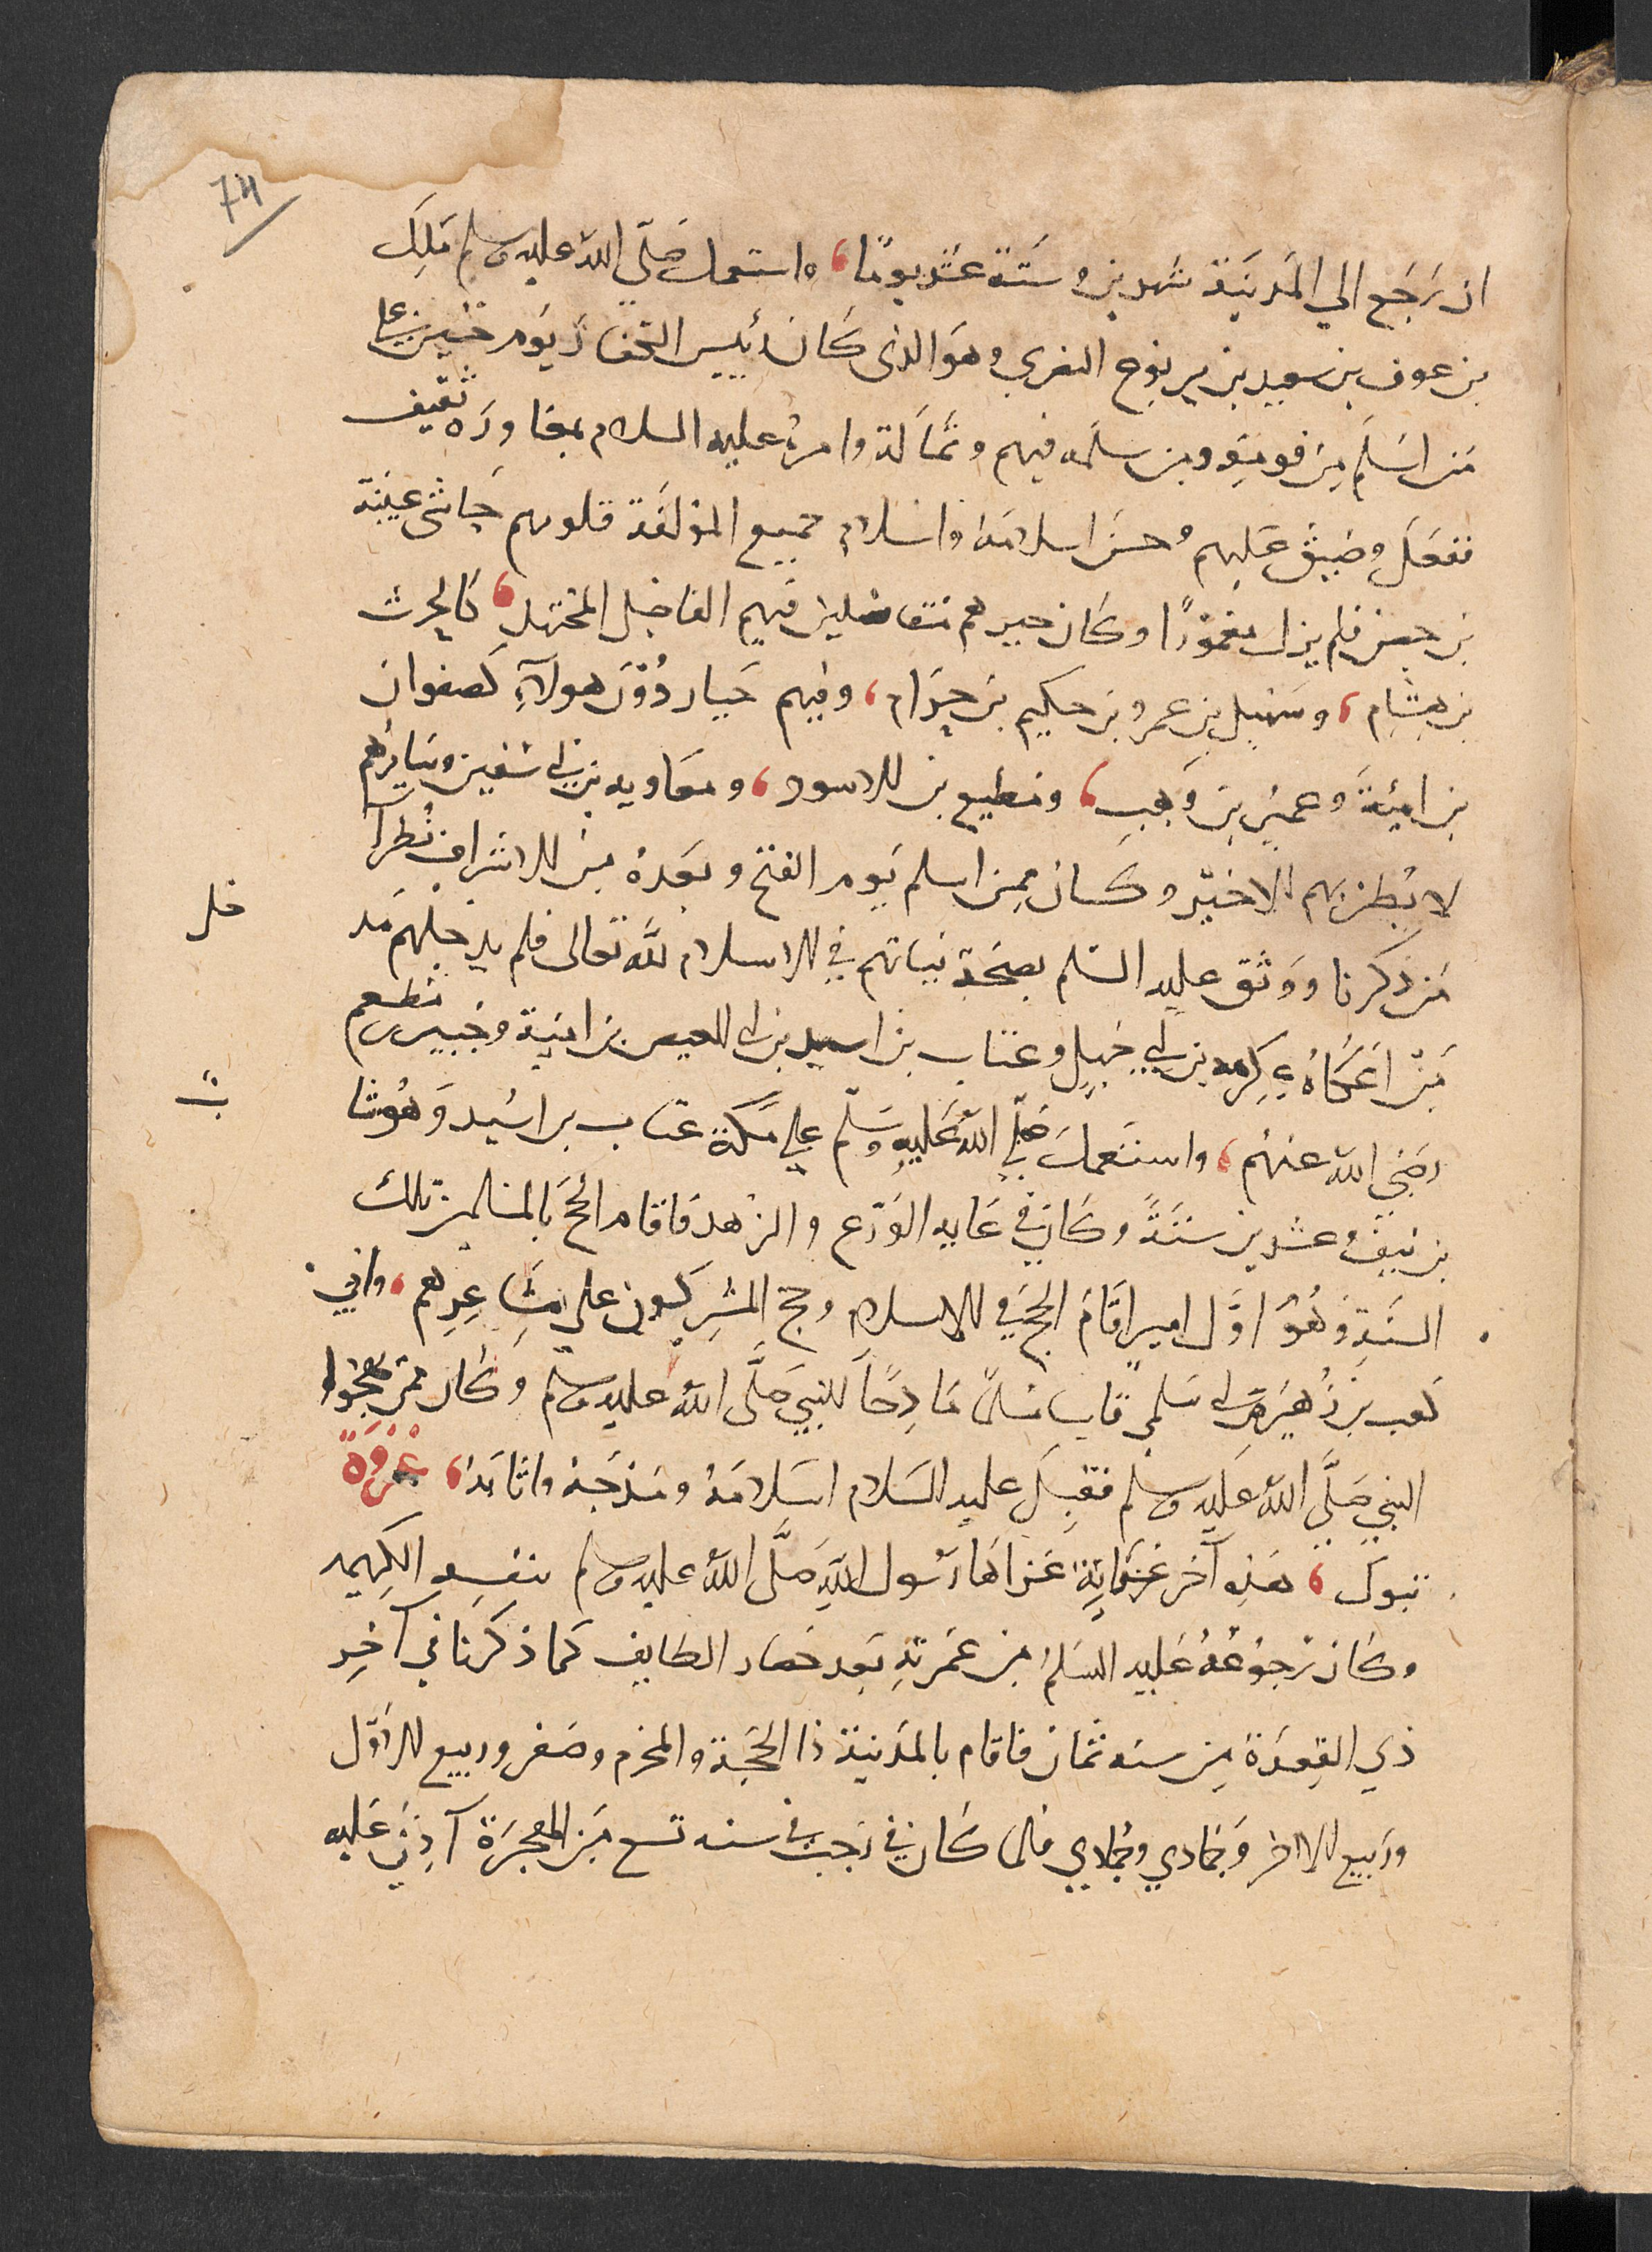 74
ان رَجَع الي المَدينَة شهرين وستَة عَشر يومًا، واستعمل صَلّى الله عليه وسلم مَلِكَ
بن عوف بن سعيد بن يربوع النصري وهوَ الذي كَان رئيس الكفار يَوم حنين علي
مَن اسَلم مِن قومِهِ ومن سلمه فيهم وثمَالة وامرهُ عليه السلام بمغاورَة ثقيف
ففعَل وضيق عَليهم وحسن اسلامهُ واسلام جميع المؤلفَة قلوبهم حاشي عيينة
بن حصن فلم يزل مغمُوزًا وكَان خيرهم متفاضلين فيهم الفاضل المجتهد، كالحرث
بن هِشام، وسُهيل بن عمرو بن حكيم بن حِزام، وفيهم خيار دُوْن هولآءِ كصفوان
بن اميَّة وعمير بن وَهب، ومطيع بن الاسود، ومعاويه بن ابي سفين وسَايرهم
لا يُظن بهم الا خيْر وكَان ممن اسلم يَوم الفتح وبعدهُ من الاشراف نُظرآ
مَن ذكرنا ووَثق عليه السّلم بصحَة نياتهم في الاسلام لله تعالى فلم يدخلهم مد
خل
مَن اعَطاهُ عِكرمه بن ابي جَهل وعتاب بن اسيد بن ابي العيص بن امية وجُبير بن مطعم
رضي الله عنهم، واستعملَ صَلّى اللهُ عَليهِ وَسَلم علي مكة عتاب بن اسَيد وَهُو شا
ب
بن نيف وعشرين سنَةً وكَان في غايه الوَرَع والزهد فاقام الحَج بالمسلمين تلك
السنَةِ وَهُوَ اوَّل اميرٍ اقَامَ الحج في الاسلام وحج المشرِكون علي مشَاعِرِهم، واتي
كعب بن زُهير بن ابي سَلمي تايباً مسلماً مَادِحًا للنبي صَلَّى اللهُ عليه وسلم وَكان ممن يهجوا
النبي صَلَّى اللهُ عَليه وسلم فقبلَ عليه السَلام اسلامهُ ومدحَهُ واثابهُ، غَزْوَةَ
تبوك، هَذهِ آخر غزَاةٍ غزاهَا رسُول اللهِ صَلَّى اللهُ عليه وسلم بنفسِهِ الكريمه
وكَان رُجوعُهُ عَليه السَلم من عُمرتهِ بَعد حَصار الطايف كما ذكرنا في آخِر
ذي القعدَة مِن سنه ثمان فاقام بالمَدينة ذا الحجَة والمحرم وصَفر وربيع الاوّل
ورَبيع الاخر وَجمادي وجمادي فلما كَان في رَجب في سنه تسع مِن الهجرَة آذِنَ عَليه